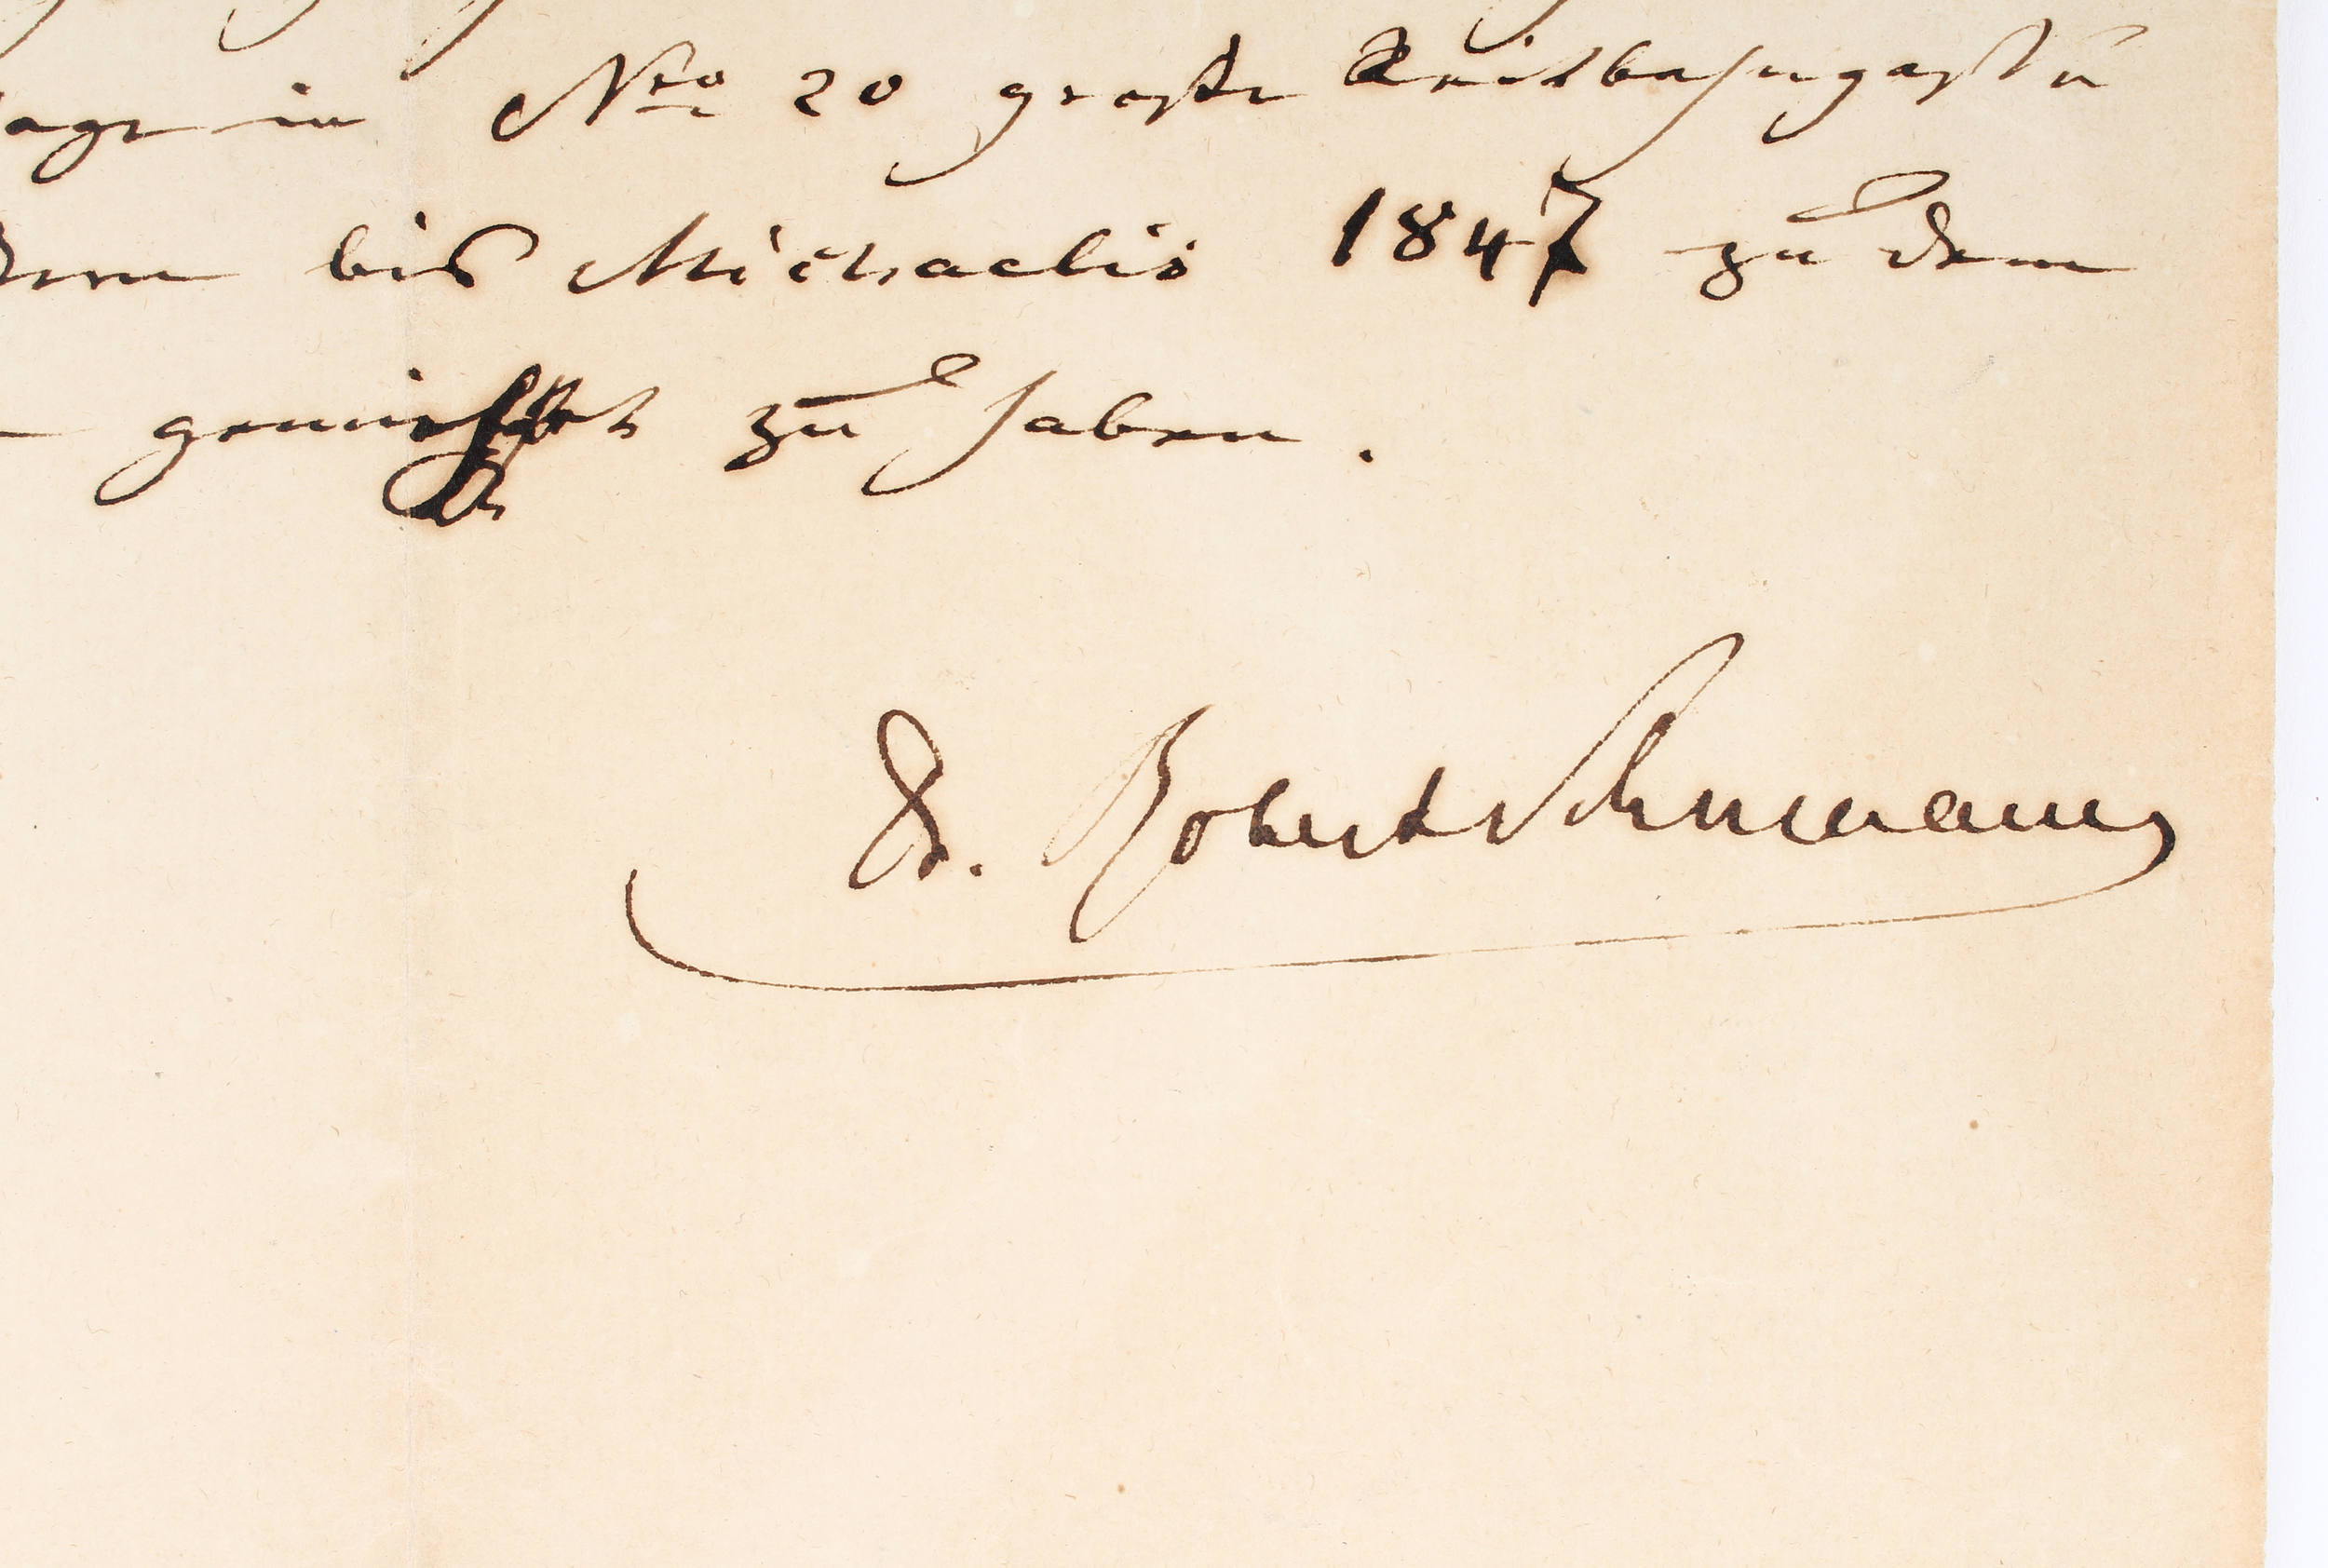 age in Nro 20 große Reitbahngasse
bis Michaelis 1847 zu dem
gemiethet zu haben.
Dr. Robert Schumann